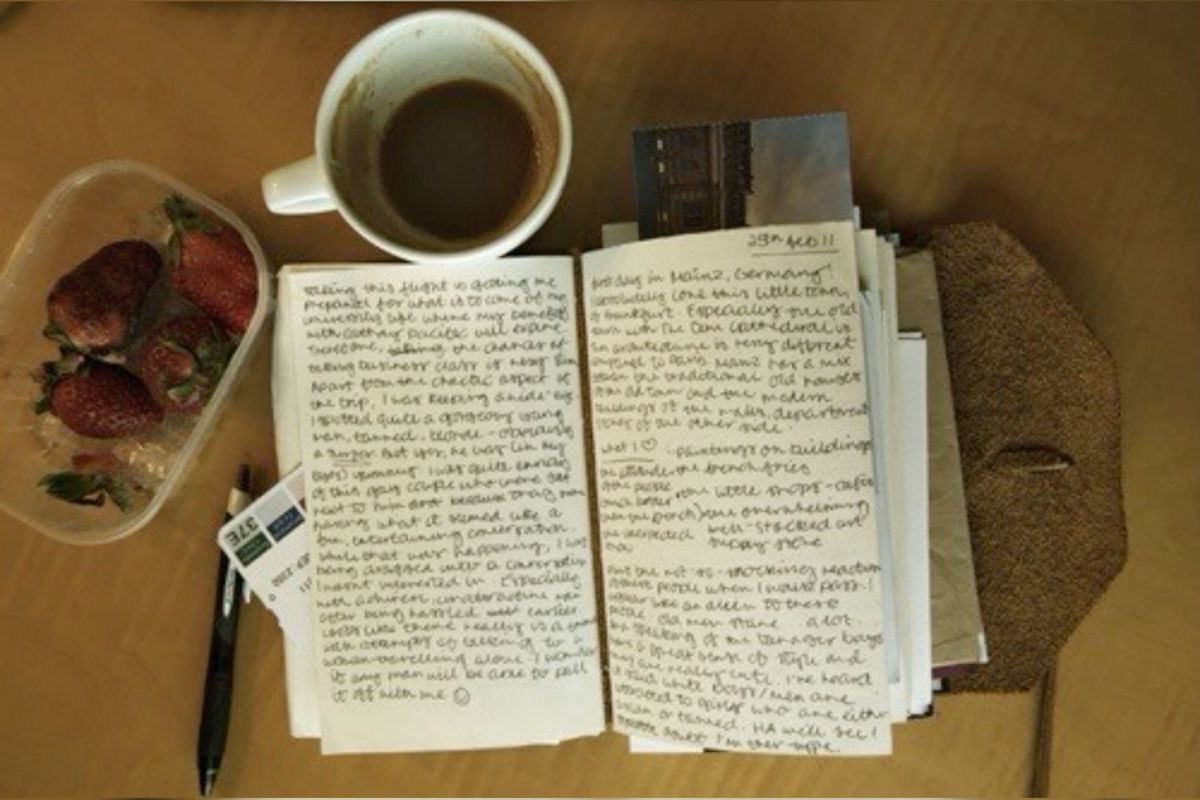 taking this flight is getting me
prepared for what is to come of my
university life where my benefits
with cathay pacific will expire.
therefore, the chances of
taking business class is very slim
Apart from the chaotic aspect of
the trip, I was keeping a side eye.
I spotted quite a gorgeous young
man, tanned, blonde - obviously
a surfer. But yes, he was (in my
I was quite envious
of this guy couple who were sat
next to him because they were
having what it seemed like a
fun, entertaining conversation.
while that was happening, I was
being dragged into a conversation
I wasn't interested in. Especially
with a chinese, construction man
after being hassled earlier.
looks like there really is a
with attempts of talking to a
woman travelling alone. I wonder
if any man will be able to pull
it off with me ☺
37E
25th Feb 11
first days in Mainz, Germany!
absolutely love this little town,
of Frankfurt. Especially the old
town with the Dom Cathedral is
architecture is very different
compared to Paris. Mainz has a mix
the traditional old houses
the old town and the modern
buildings of the malls, department
stores of the other side.
what I ♡ paintings on buildings
the french fries
the people
the little shops - cafes
the overwhelming
well-stocked art
supply store
But the not so - shocking reaction
other people when I walk past. I
like an alien to these
people. old men stare a lot.
speaking of the teenager boys
a great sense of style and
they are really cute. I've heard
white boys/men are
attracted to girls who are either
asian or tanned. HA we'll see!
doubt I'm their type.